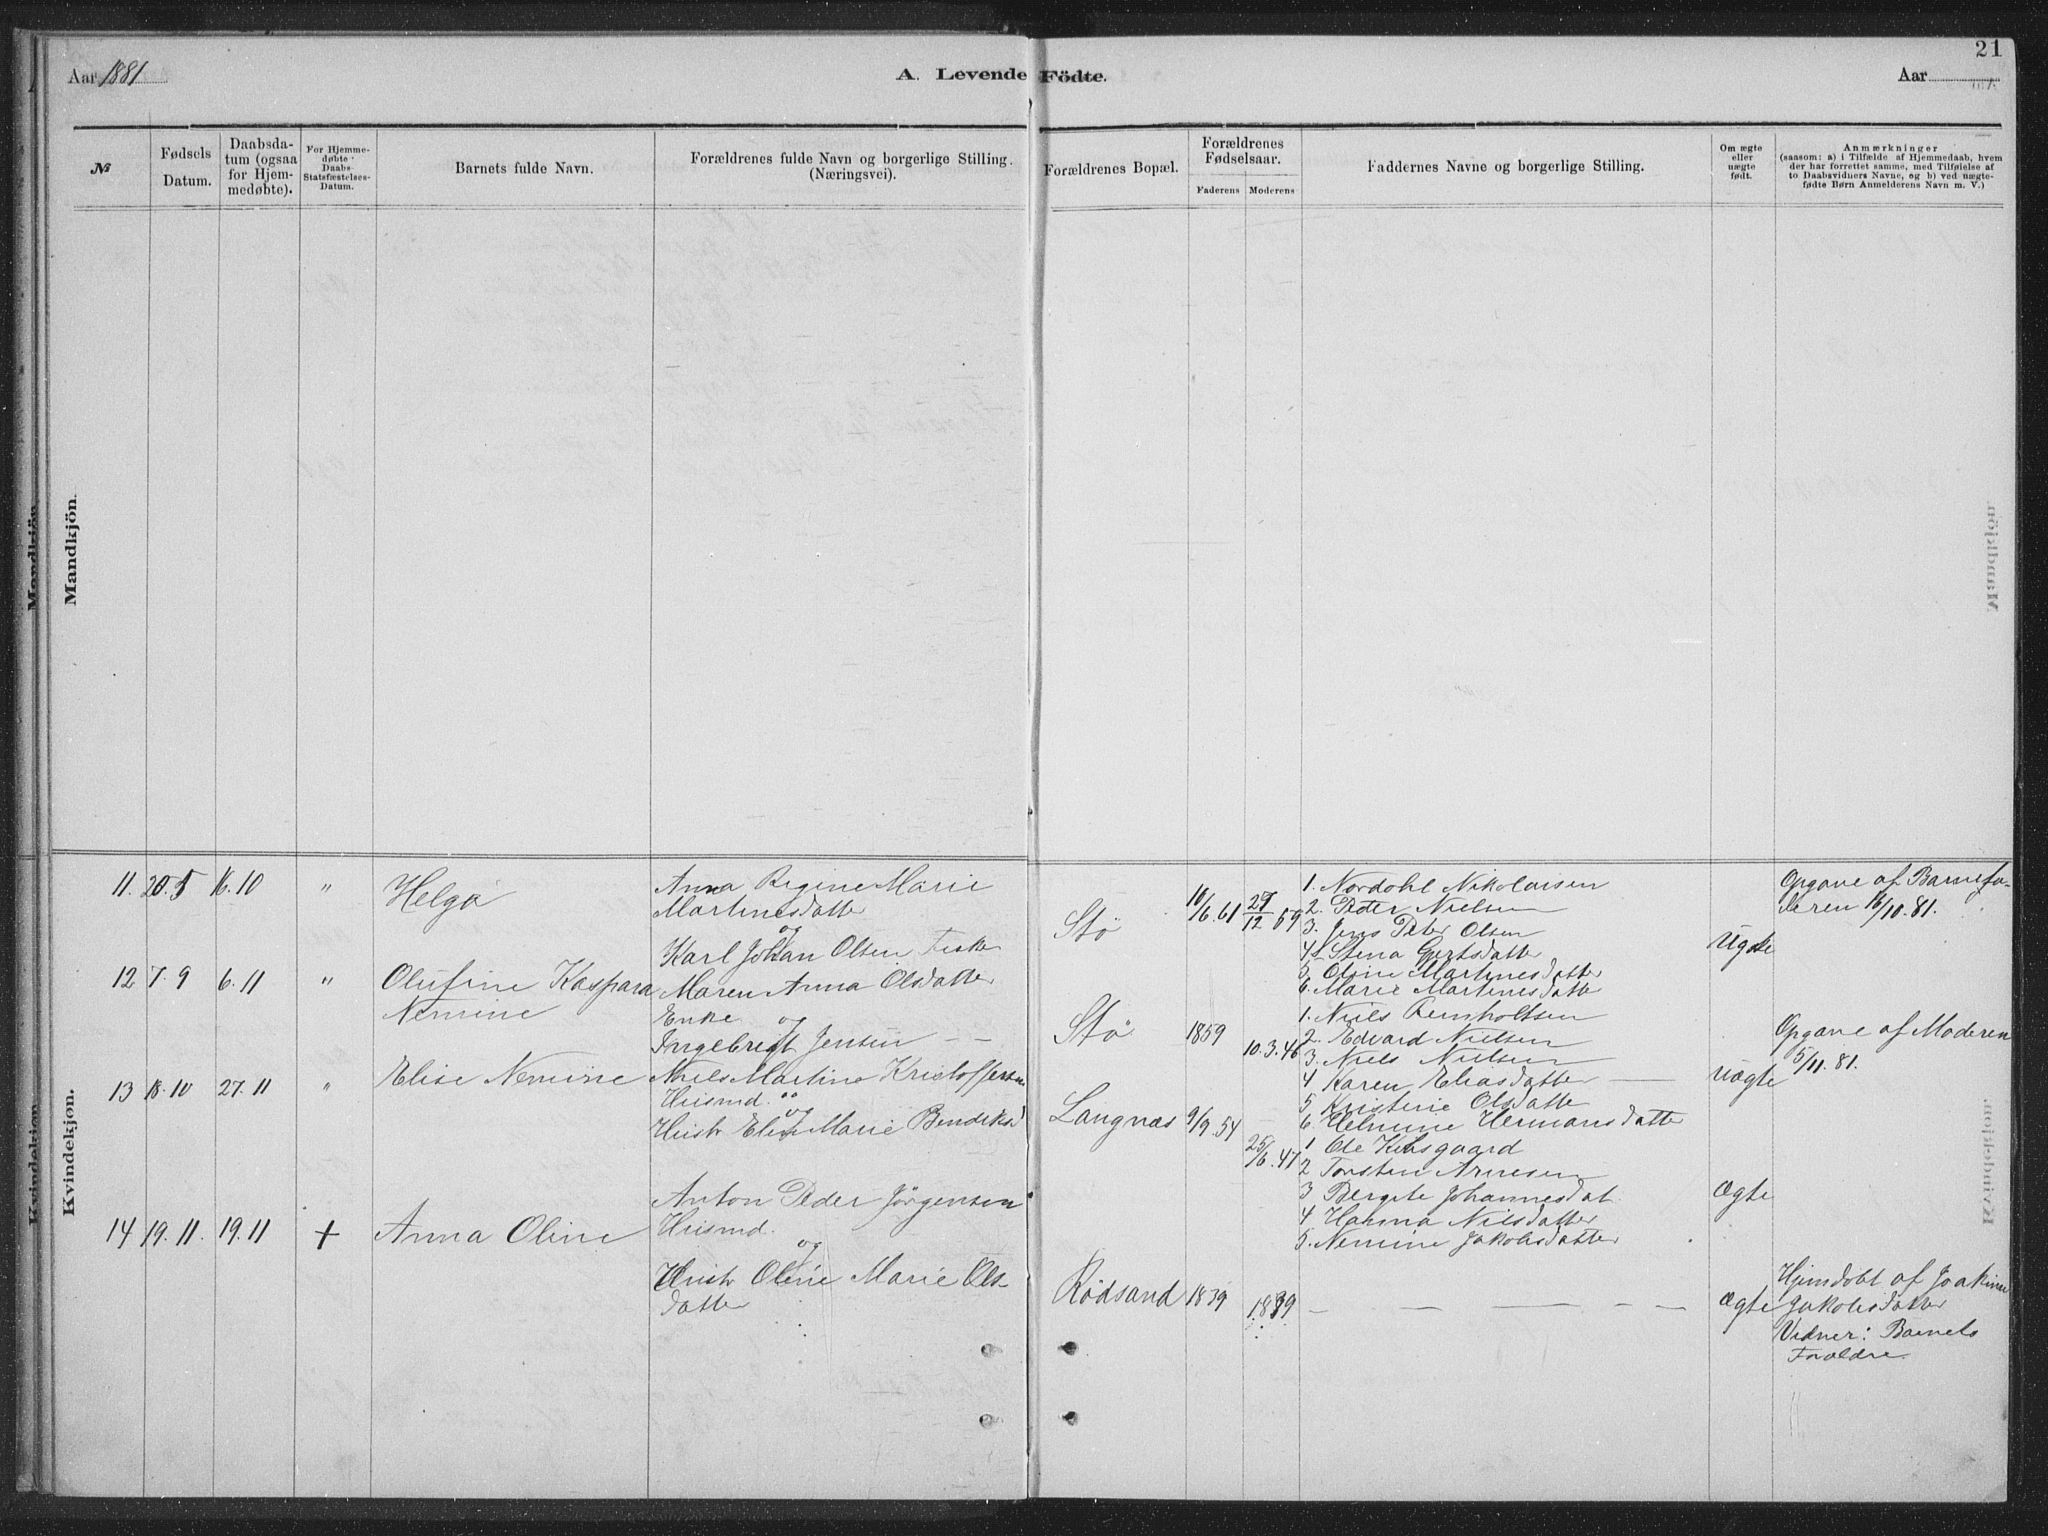 Aar 1881
A. Levende Födte.
Aar
21
№
Fødsels Datum.
Daabsda-
tum (ogsaa
for Hjem-
medøbte).
For Hjemme-
døbte
Daabs
Statsfæstelses-
Datum.
Barnets fulde Navn.
Forældrenes fulde Navn og borgerlige Stilling.
(Næringsvei).
Forældrenes Bopæl.
Forældrenes
Fødselsaar.
Faderens
Moderens
Faddernes Navne og borgerlige Stilling.
Om ægte
eller
uægte
født.
Anmærkninger
(saasom: a) i Tilfælde af Hjemmedaab, hvem
der har forrettet samme, med Tilføielse af
to Daabsvidners Navne, og b) ved uægte-
fødte Børn Anmelderens Navn m. V.)
Mandkjön.
Kvindekjön.
11. 20.5 16.10 " Helga
Anna Regine Marie
Martinesdatter
og
Karl Johan Olsen Fisker
Stö 10/6.61 27/12 59
1. Nordahl Nikolaisen
2. Peder Nielsen
3. Jens Peter Olsen
4 Stena Gjertsdatter
5. Oline Martinesdatter
6. Marie Martinesdatter
Ugte
Opgave af Barnefa-
deren 16/10.81.
12 7.9 6.11 " Olufine Kaspara
Nemine
Maren Anna Olsdatter
Enke og
Ingebrigt Jensen — —
Stö 1859 10.3.46
1. Niels Bernholtsen
2. Edvard Nielsen
3. Niels Nielsen
4 Karen Eliasdatter —
5 Kristine Olsdatter
6. Helmine Hermansdatter
uægte
Opgave af Moderen
5/11.81.
13 18.10 27.11 " Elise Nemine
Niels Martin Kristoffersen
Husmd. og
Hustr Elen Marie Bendiksd
Langnæs 9/9.54 25/6.47
1 Ole Kilsgaard
2 Torsten Arnesen
3 Bergite Johannesdat
4 Hanna Nilsdatter
5. Nemine Jakobsdatter
Ægte
14 19.11. 19.11 + Anna Oline
Anton Peder Jörgensen
Husmd.
og
Hustr Oline Marie Ols-
datter
Rödsand 1839 1839 — — — — —
Ægte
Hjemdöbt af Joakime
Jakobsdatter
Vidner: Barnets
Forældre